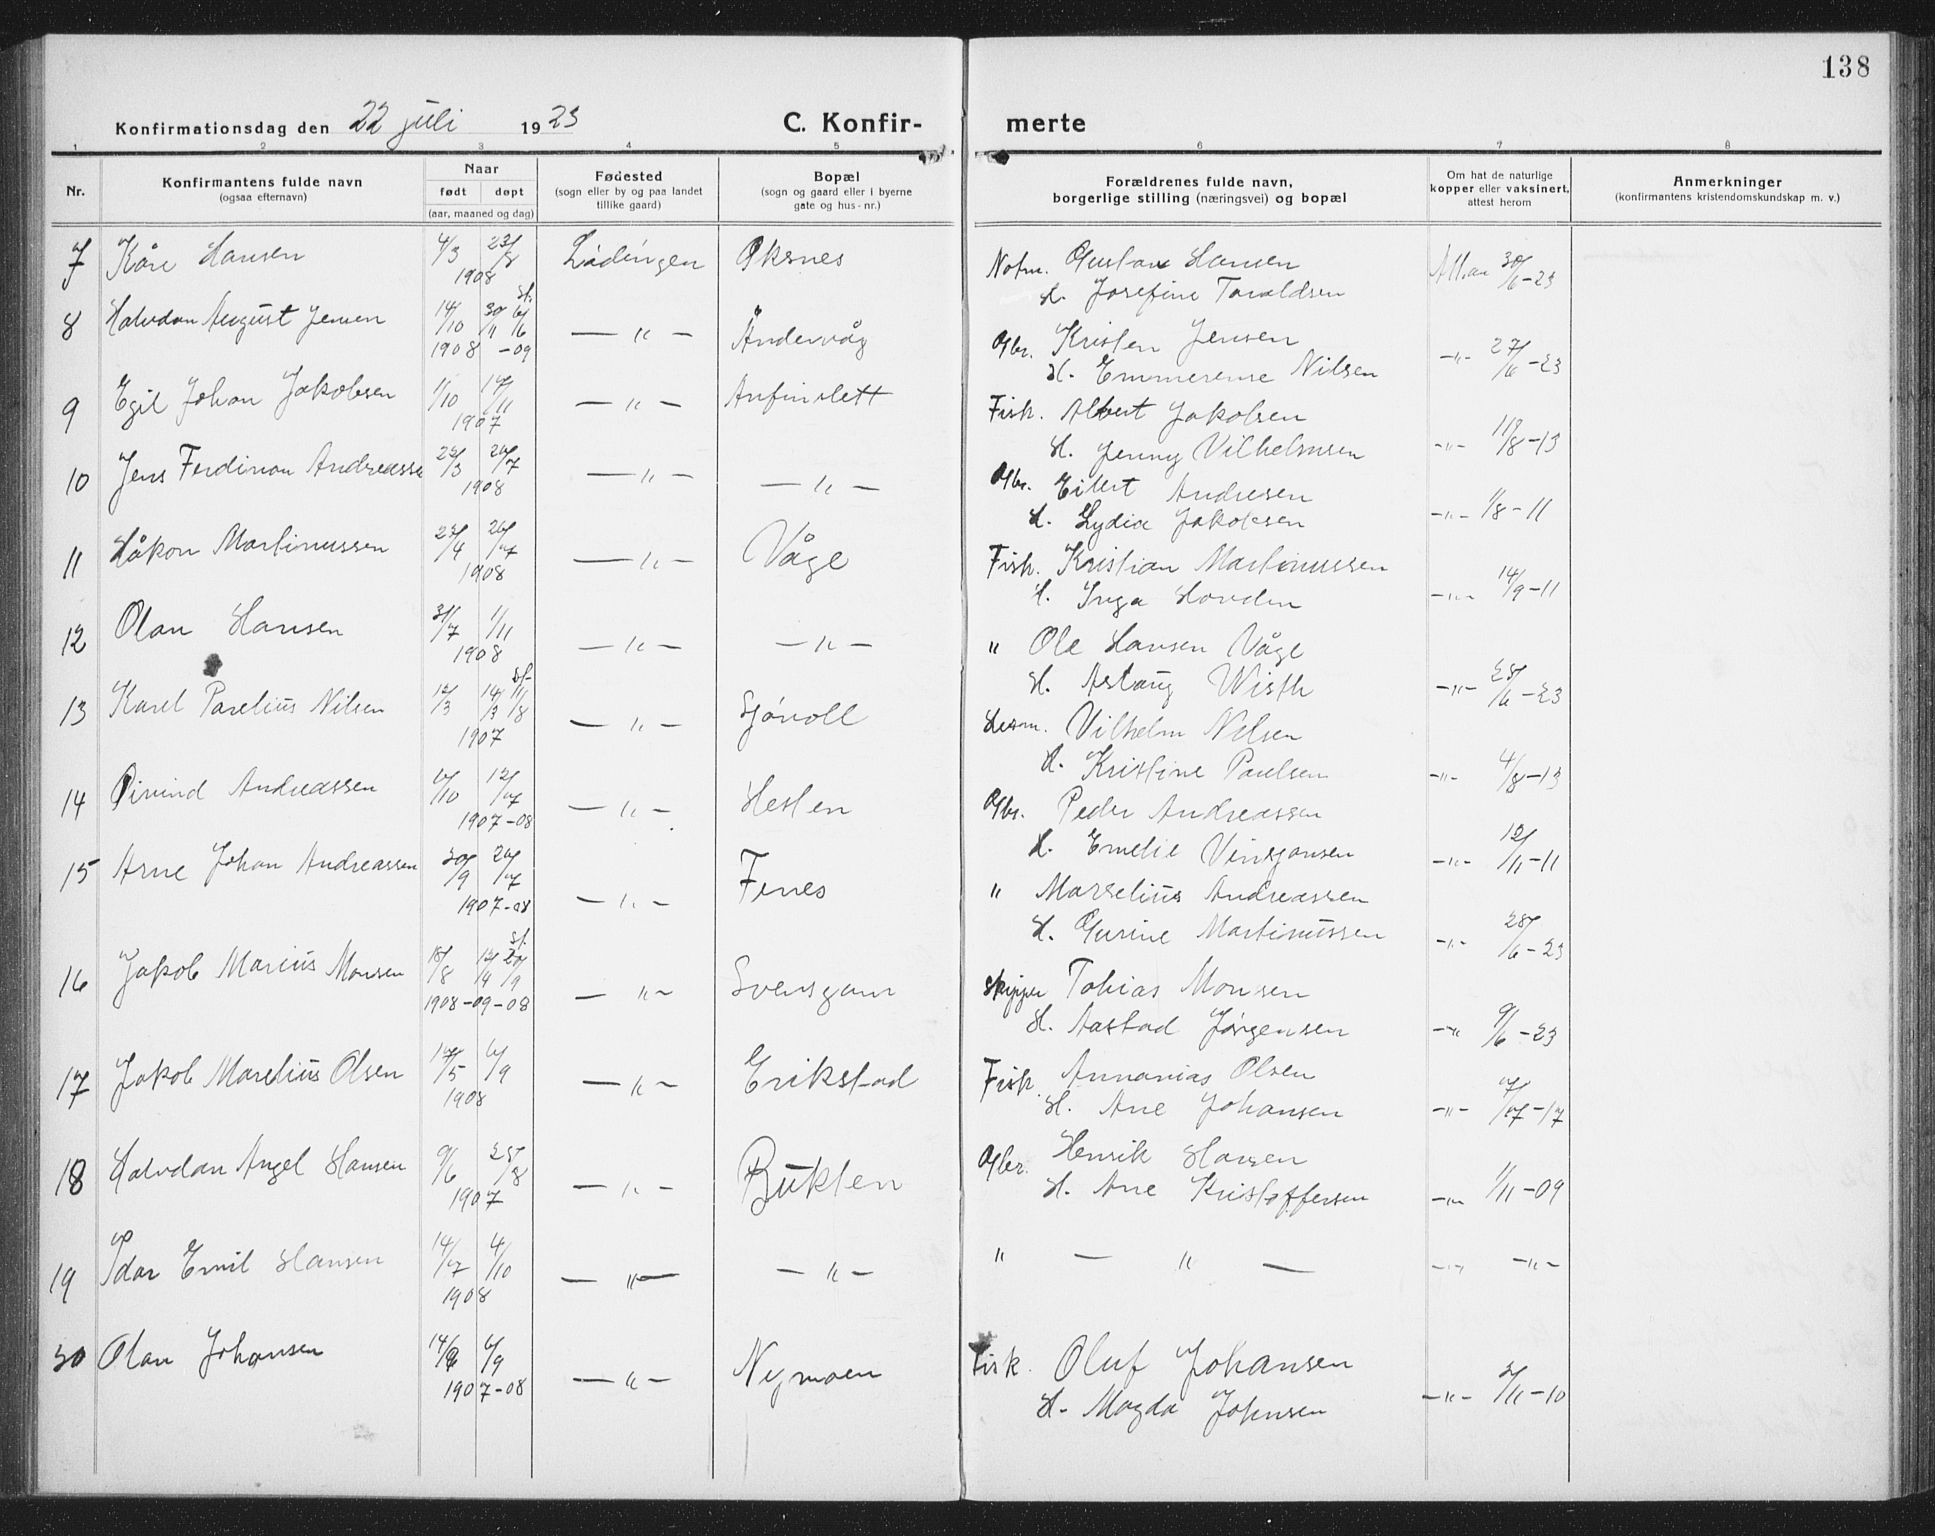 138
Konfirmationsdag den 22 juli 1923
C. Konfir-
merte
1 2 3 4 5 6 7 8
Nr.
Konfirmantens fulde navn
(ogsaa efternavn)
Naar
født døpt
(aar, maaned og dag)
Fødested
(sogn eller by og paa landet
tillike gaard)
Bopæl
(sogn og gaard eller i byerne
gate og hus-nr.)
Forældrenes fulde navn,
borgerlige stilling (næringsvei) og bopæl
Om hat de naturlige
kopper eller vaksinert,
attest herom
Anmerkninger
(konfirmantens kristendomskundskap m. v.)
7 Kåre Hansen 4/3 23/8 Lödingen Oksnes Notm. Gustav Hansen Att. av 30/6-23
1908 H. Josefine Taraldsen
8 Halvdan August Jensen 14/10 30/11 6/6 — " — Åndervåg Gbr. Kristen Jensen — " — 27/6-23
1908 -09 H. Emmerense Nilsen
9 Egil Johan Jakobsen 1/10 17/11 — " — Anfinslett Fisk. Albert Jakobsen
1907 H. Jenny Vilhelmsen — " — 11/8-13
10 Jens Ferdinan Andreasse 22/3 26/7 — " — — " — Gbr. Eilert Andresen
1908 H. Lydia Jakobsen — " — 1/8-11
11 Håkon Martinussen 23/4 26/7 — " — Våge Fisk. Kristian Martinussen
1908 H. Inga Hovden — " — 14/9-11
12 Olav Hansen 31/7 1/11 — " — — " — " Ole Hansen Våge
1908 H. Aslaug Wisth — " — 28/6-23
13 Karel Parelius Nilsen 12/3 14/3 11/8 — " — Sjövoll Herm. Vilhelm Nilsen
1907 H. Kristine Paulsen — " — 4/8-13
14 Öivind Andreassen 6/10 12/7 — " — Hesten Gbr. Peder Andreassen
1907-08 H. Emelie Vinsjansen — " — 12/11-11
15 Arne Johan Andreassen 30/9 26/7 — " — Fines " Marselius Andreassen
1907-08 H. Gurine Martinussen — " — 28/6-23
16 Jakob Marius Monsen 18/8 12/4 20/9 — " — Svensgam Skipper Tobias Monsen
1908-09-08 H. Aastad Jörgensen — " — 9/6-23
17 Jakob Marelius Olsen 17/5 6/9 — " — Erikstad Fisk. Annanias Olsen
1908 H. Ane Johansen — " — 7/7-17
18 Halvdan Angel Hansen 9/6 25/8 — " — Bukten Gbr. Henrik Hansen
1907 H. Ane Kristoffersen — " — 1/11-09
19 Idar Emil Hansen 14/7 4/10 — " — — " — " — " — — " — — " —
1908
30 Olav Johansen 14/9 6/9 — " — Nymoen Fisk. Oluf Johansen
1907-08 H. Magda Johnsen — " — 2/11-10